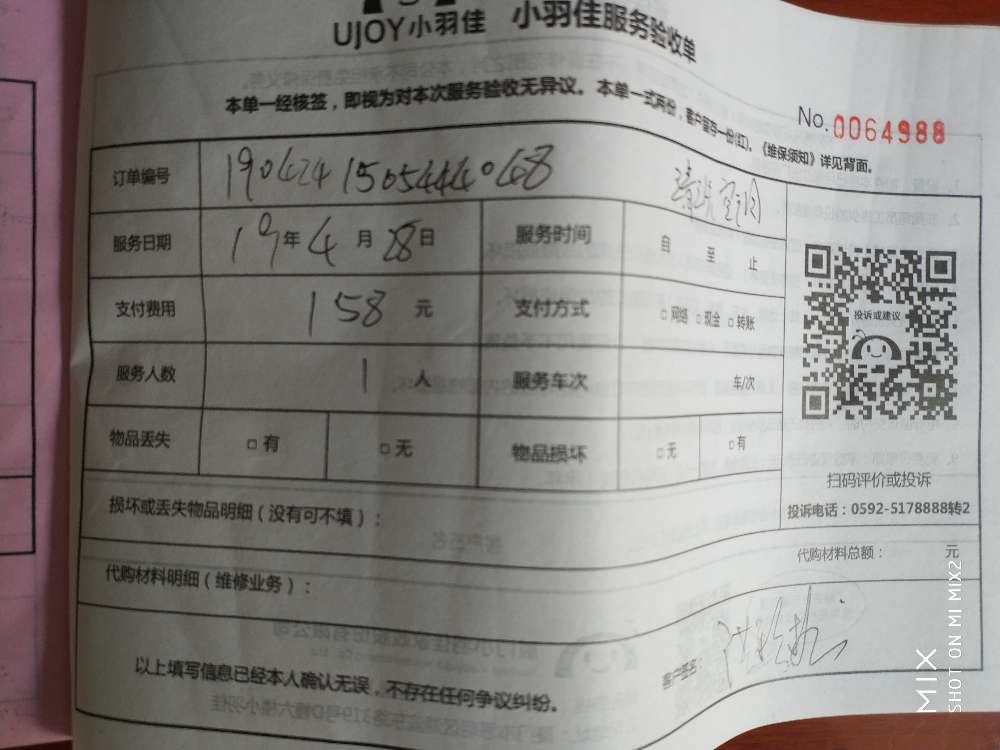 UJOY小羽佳 小羽佳服务验收单
本单一经核签,即视为对本次服务验收无异议。本单一式两份,客户留存一份(红)。《维保须知》详见背面。
No.0064988
订单编号 1904241505444068
服务日期 19年4月28日 服务时间 自 至 止
支付费用 158元 支付方式 □网络 □现金 □转账
服务人数 1人 服务车次 车/次
物品丢失 □有 □无 物品损坏 □无 □有
投诉或建议
扫码评价或投诉
投诉电话:0592-5178888转2
损坏或丢失物品明细(没有可不填):
代购材料总额: 元
代购材料明细(维修业务):
以上填写信息已经本人确认无误,不存在任何争议纠纷。
客户签名:
MIX
SHOT ON MI MIX2